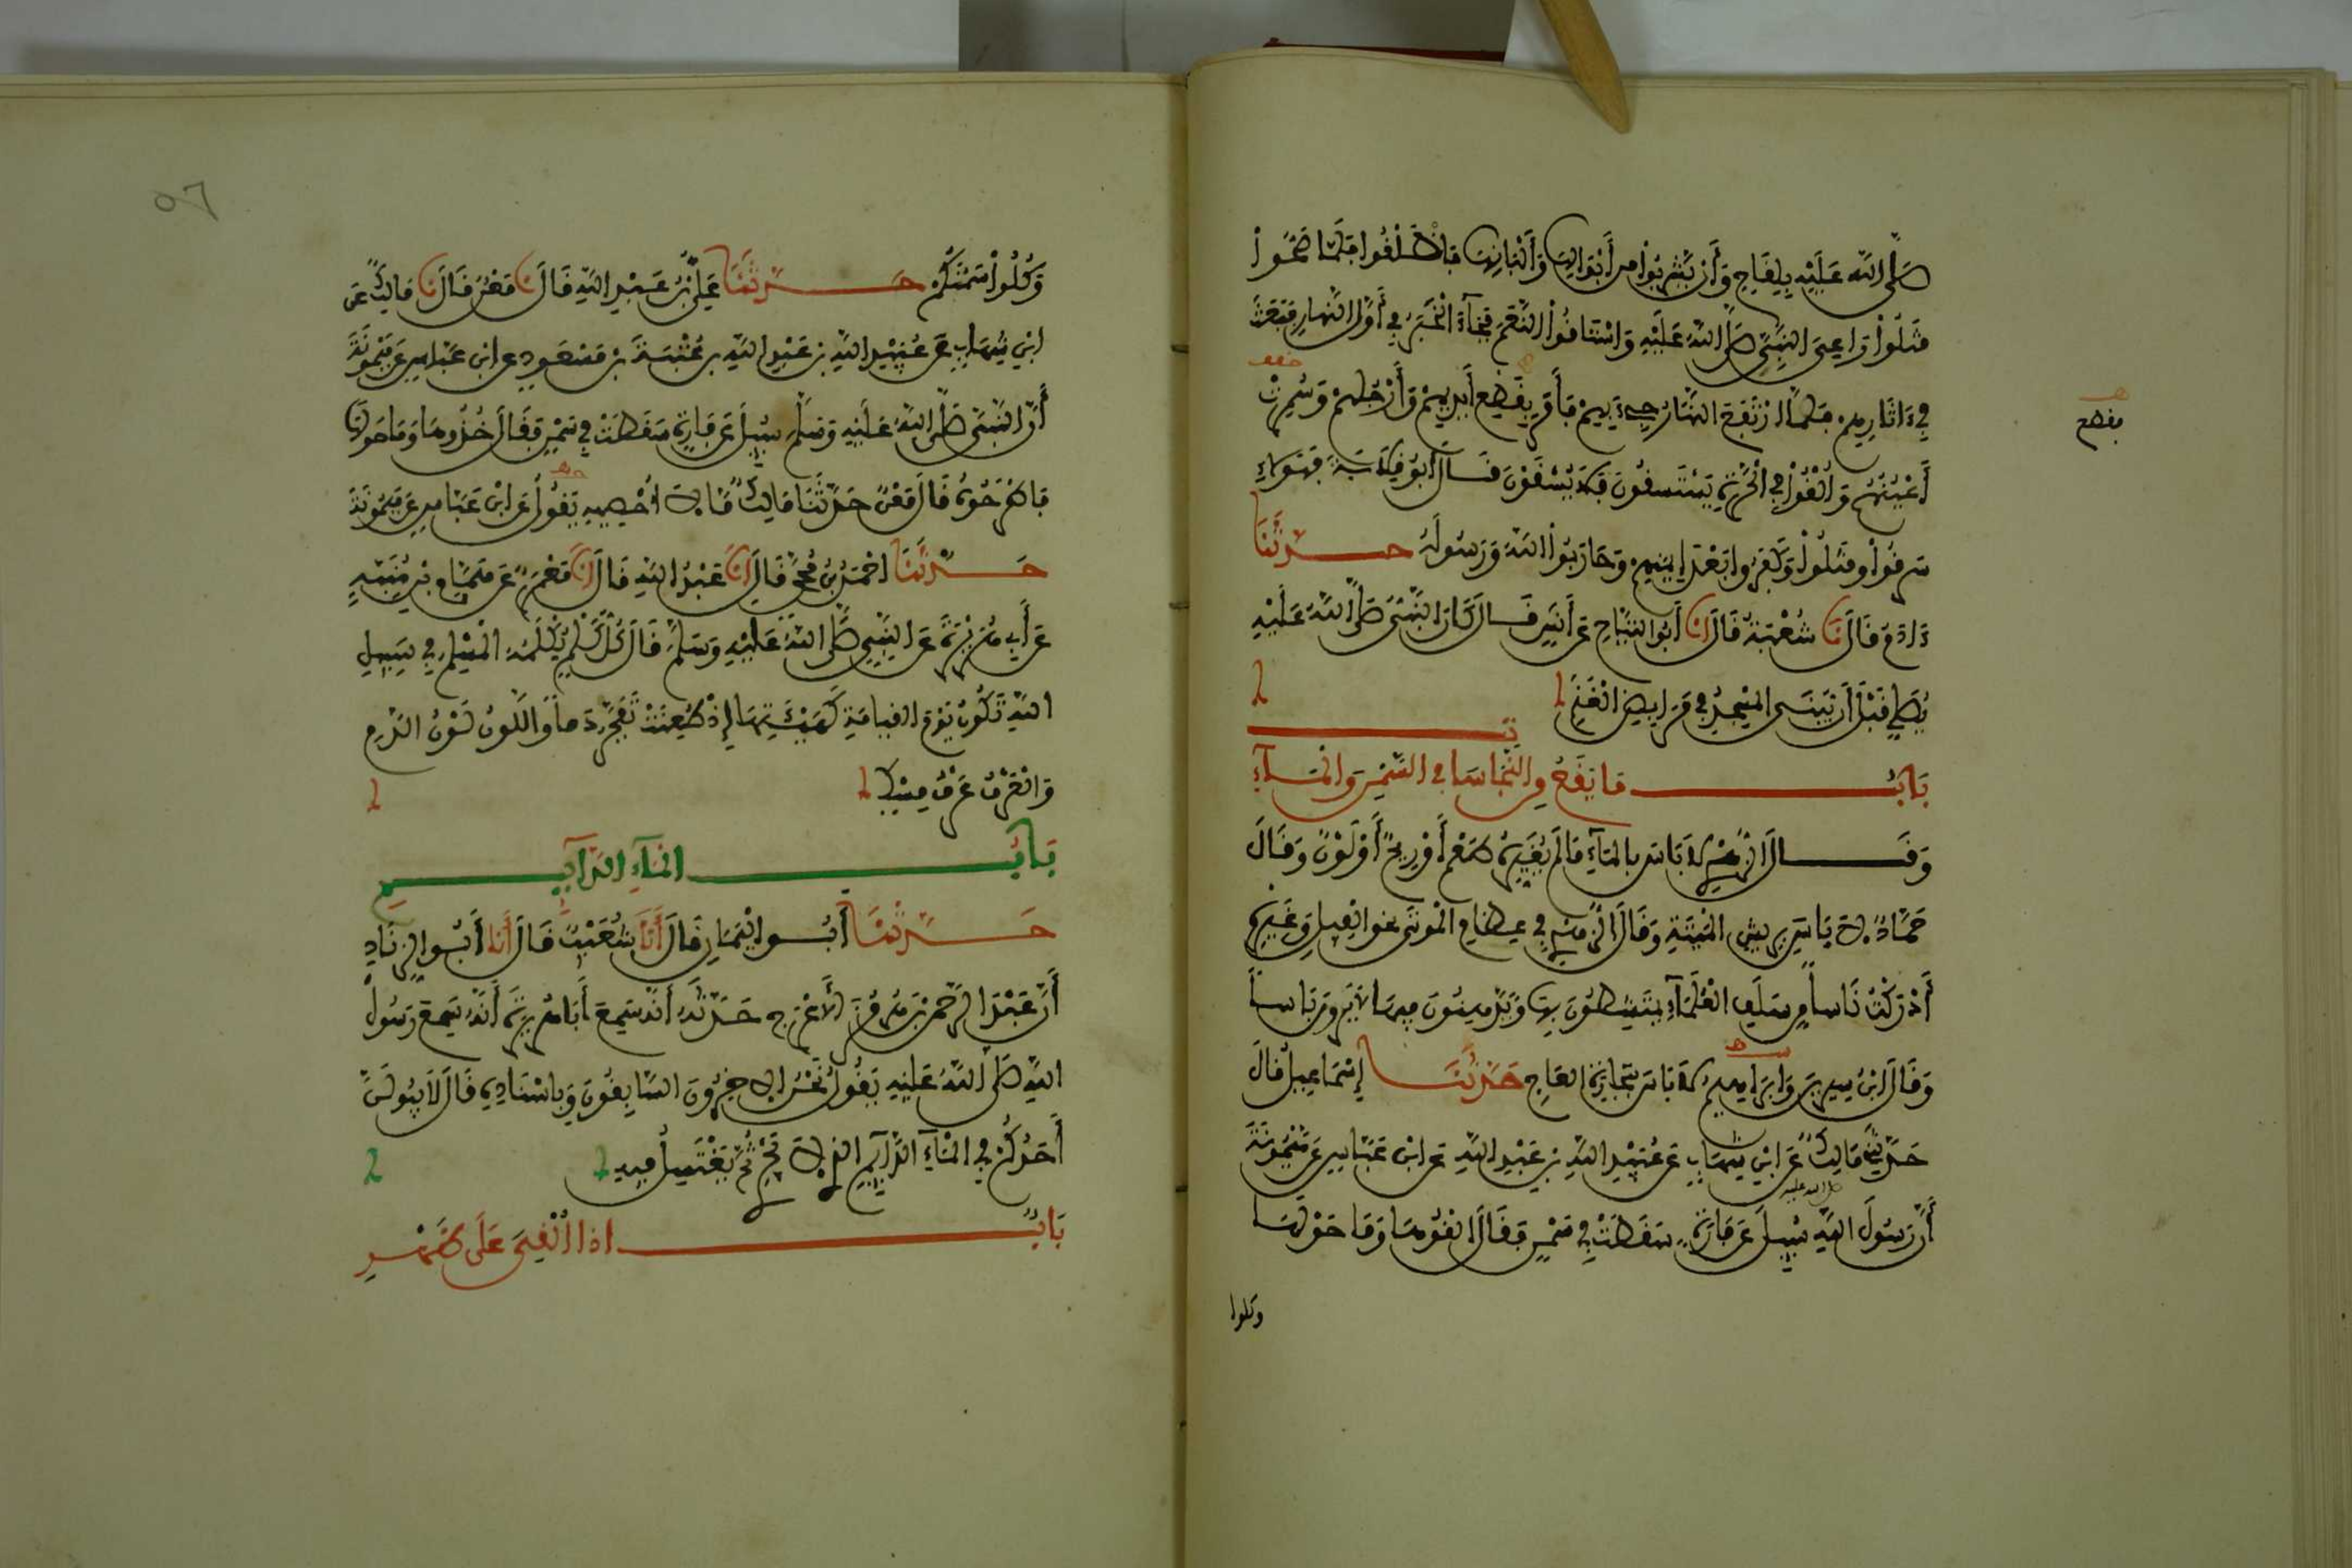 صَلَّى اللَّهُ عَلَيْهِ بِلِقَاحٍ وَأَنْ يَشْرَبُوا مِنْ أَبْوَالِهَا وَأَلْبَانِهَا فَانْطَلَقُوا فَلَمَّا صَحُّوا
قَتَلُوا رَاعِيَ النَّبِيِّ صَلَّى اللَّهُ عَلَيْهِ وَاسْتَاقُوا النَّعَمَ فَجَاءَ الْخَبَرُ فِي أَوَّلِ النَّهَارِ فَبَعَثَ
فِي ءَاثَارِهِمْ فَلَمَّا ارْتَفَعَ النَّهَارُ جِيءَ بِهِمْ فَأَمَرَ بِقَطْعِ أَيْدِيهِمْ وَأَرْجُلِهِمْ وَسُمِرَتْ
فقطع
أَعْيُنُهُمْ وَأُلْقُوا فِي الْحَرَّةِ يَسْتَسْقُونَ فَلَا يُسْقَوْنَ قَالَ أَبُو قِلَابَةَ فَهَؤُلَاءِ
سَرَقُوا وَقَتَلُوا وَكَفَرُوا بَعْدَ إِيمَانِهِمْ وَحَارَبُوا اللَّهَ وَرَسُولَهُ حَدَّثَنَا
ءَادَمُ قَالَ نَا شُعْبَةُ قَالَ أَنَا أَبُو التَّيَّاحِ عَنْ أَنَسٍ قَالَ كَانَ النَّبِيُّ صَلَّى اللَّهُ عَلَيْهِ
يُصَلِّي قَبْلَ أَنْ يُبْنَى الْمَسْجِدُ فِي مَرَابِضِ الْغَنَمِ
بَابُ مَا يَقَعُ مِنَ النَّجَاسَاتِ فِي السَّمْنِ وَالْمَاءِ
وَقَالَ الزُّهْرِيُّ لَا بَأْسَ بِالْمَاءِ مَا لَمْ يُغَيِّرْهُ طَعْمٌ أَوْ رِيحٌ أَوْ لَوْنٌ وَقَالَ
حَمَّادٌ لَا بَأْسَ بِرِيشِ الْمَيْتَةِ وَقَالَ الزُّهْرِيُّ فِي عِظَامِ الْمَوْتَى نَحْوَ الْفِيلِ وَغَيْرِهِ
أَدْرَكْتُ نَاسًا مِنْ سَلَفِ الْعُلَمَاءِ يَمْتَشِطُونَ بِهَا وَيَدَّهِنُونَ فِيهَا لَا يَرَوْنَ بَأْسًا
وَقَالَ ابْنُ سِيرِينَ وَإِبْرَاهِيمُ لَا بَأْسَ بِتِجَارَةِ الْعَاجِ حَدَّثَنَا إِسْمَاعِيلُ قَالَ
حَدَّثَنِي مَالِكٌ عَنِ ابْنِ شِهَابٍ عَنْ عُبَيْدِ اللَّهِ بْنِ عَبْدِ اللَّهِ عَنِ ابْنِ عَبَّاسٍ عَنْ مَيْمُونَةَ
أَنَّ رَسُولَ اللَّهِ صلى الله عليه سُئِلَ عَنْ فَأْرَةٍ سَقَطَتْ فِي سَمْنٍ فَقَالَ أَلْقُوهَا وَمَا حَوْلَهَا
وكلوا
٥٦
وَكُلُوا سَمْنَكُمْ حَدَّثَنَا عَلِيُّ بْنُ عَبْدِ اللَّهِ قَالَ نَا مَعْنٌ قَالَ نَا مَالِكٌ عَنِ
ابْنِ شِهَابٍ عَنْ عُبَيْدِ اللَّهِ بْنِ عَبْدِ اللَّهِ بْنِ عُتْبَةَ بْنِ مَسْعُودٍ عَنِ ابْنِ عَبَّاسٍ عَنْ مَيْمُونَةَ
أَنَّ النَّبِيَّ صَلَّى اللَّهُ عَلَيْهِ وَسَلَّمَ سُئِلَ عَنْ فَأْرَةٍ سَقَطَتْ فِي سَمْنٍ فَقَالَ خُذُوهَا وَمَا حَوْلَهَا
فَاطْرَحُوهُ قَالَ مَعْنٌ حَدَّثَنَا مَالِكٌ مَا لَا أُحْصِيهِ يَقُولُ عَنِ ابْنِ عَبَّاسٍ عَنْ مَيْمُونَةَ
حَدَّثَنَا أَحْمَدُ بْنُ مُحَمَّدٍ قَالَ أَنَا عَبْدُ اللَّهِ قَالَ أَنَا مَعْمَرٌ عَنْ هَمَّامِ بْنِ مُنَبِّهٍ
عَنْ أَبِي هُرَيْرَةَ عَنِ النَّبِيِّ صَلَّى اللَّهُ عَلَيْهِ وَسَلَّمَ قَالَ كُلُّ كَلْمٍ يُكْلَمُهُ الْمُسْلِمُ فِي سَبِيلِ
اللَّهِ تَكُونُ يَوْمَ الْقِيَامَةِ كَهَيْئَتِهَا إِذْ طُعِنَتْ تَفَجَّرُ دَمًا وَاللَّوْنُ لَوْنُ الدَّمِ
وَالْعَرْفُ عَرْفُ مِسْكٍ
بَابُ الْمَاءِ الدَّائِمِ
حَدَّثَنَا أَبُو الْيَمَانِ قَالَ أَنَا شُعَيْبٌ قَالَ أَنَا أَبُو الزِّنَادِ
أَنَّ عَبْدَ الرَّحْمَنِ بْنَ هُرْمُزَ الْأَعْرَجَ حَدَّثَهُ أَنَّهُ سَمِعَ أَبَا هُرَيْرَةَ أَنَّهُ سَمِعَ رَسُولَ
اللَّهِ صَلَّى اللَّهُ عَلَيْهِ يَقُولُ نَحْنُ الْآخِرُونَ السَّابِقُونَ وَبِإِسْنَادِهِ قَالَ لَا يَبُولَنَّ
أَحَدُكُمْ فِي الْمَاءِ الدَّائِمِ الَّذِي لَا يَجْرِي ثُمَّ يَغْتَسِلُ فِيهِ
بَابُ إِذَا أُلْقِيَ عَلَى ظَهْرِ